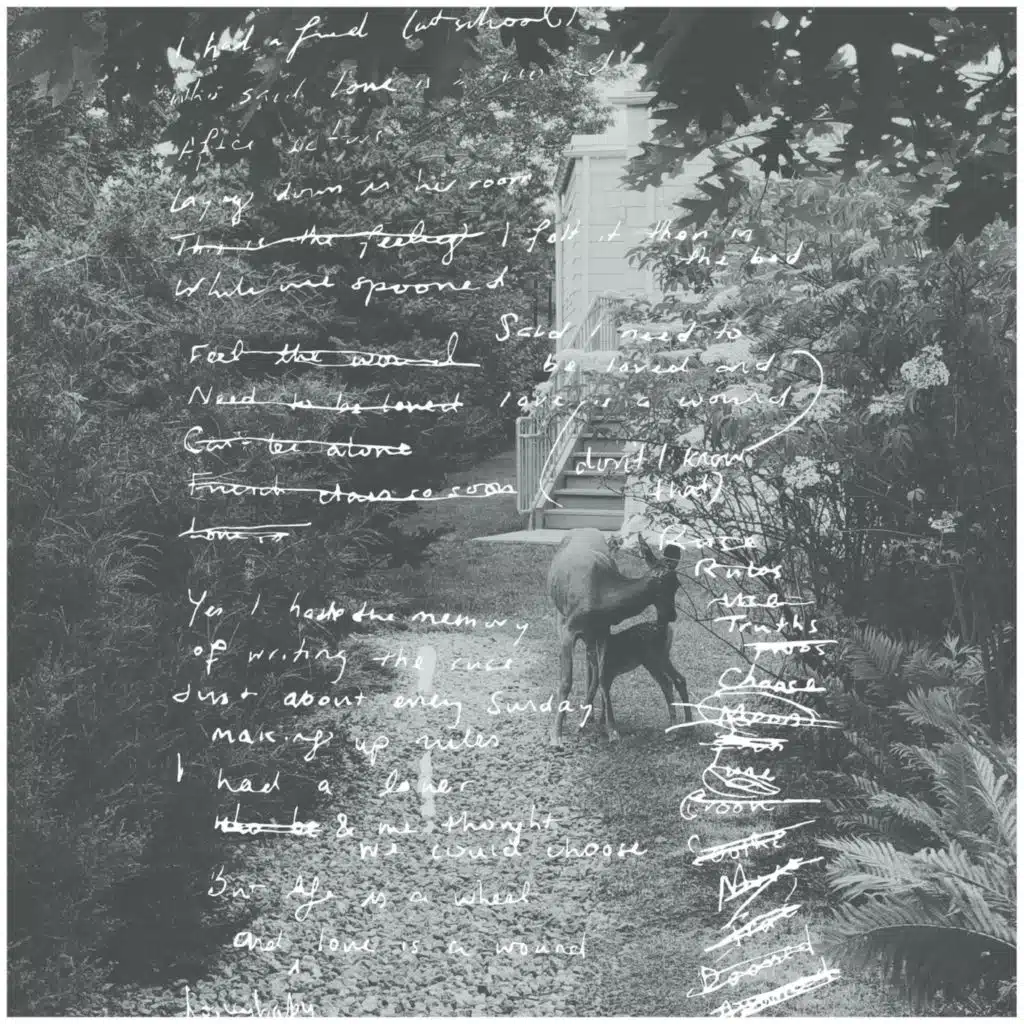 I had a friend (at school)
who said love is a wound
After
Laying down in her room
This is the feeling I felt it then in
the bed
While we spooned
Said I need to
Feel the wound be loved and
Need to be loved love is a wound
Can't be alone (don't I know
French class so soon that)
Love is
Ruse
Rules
the
Yes I hate the memory Truths
of writing the ruse
Chance
Just about every Sunday
Moons
making up rules
I had a lover
Croon
who he & me thought
we could choose
But life is a wheel
and love is a wound
Doomed
honeybaby